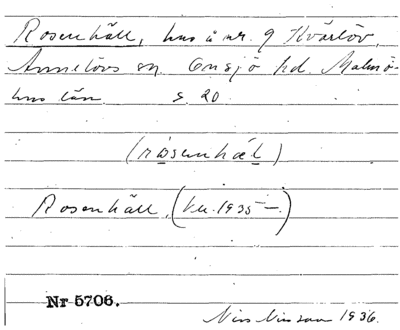 Rosenhäll, hus å nr. 9 Kvärlöv,
Annelövs sn. Onsjö hd. Malmö-
hus län. s. 20.
(rosenhæl)
Rosenhäll, (Ku. 1935 —)
Nr 5706.
Nils Nilsson 1936.